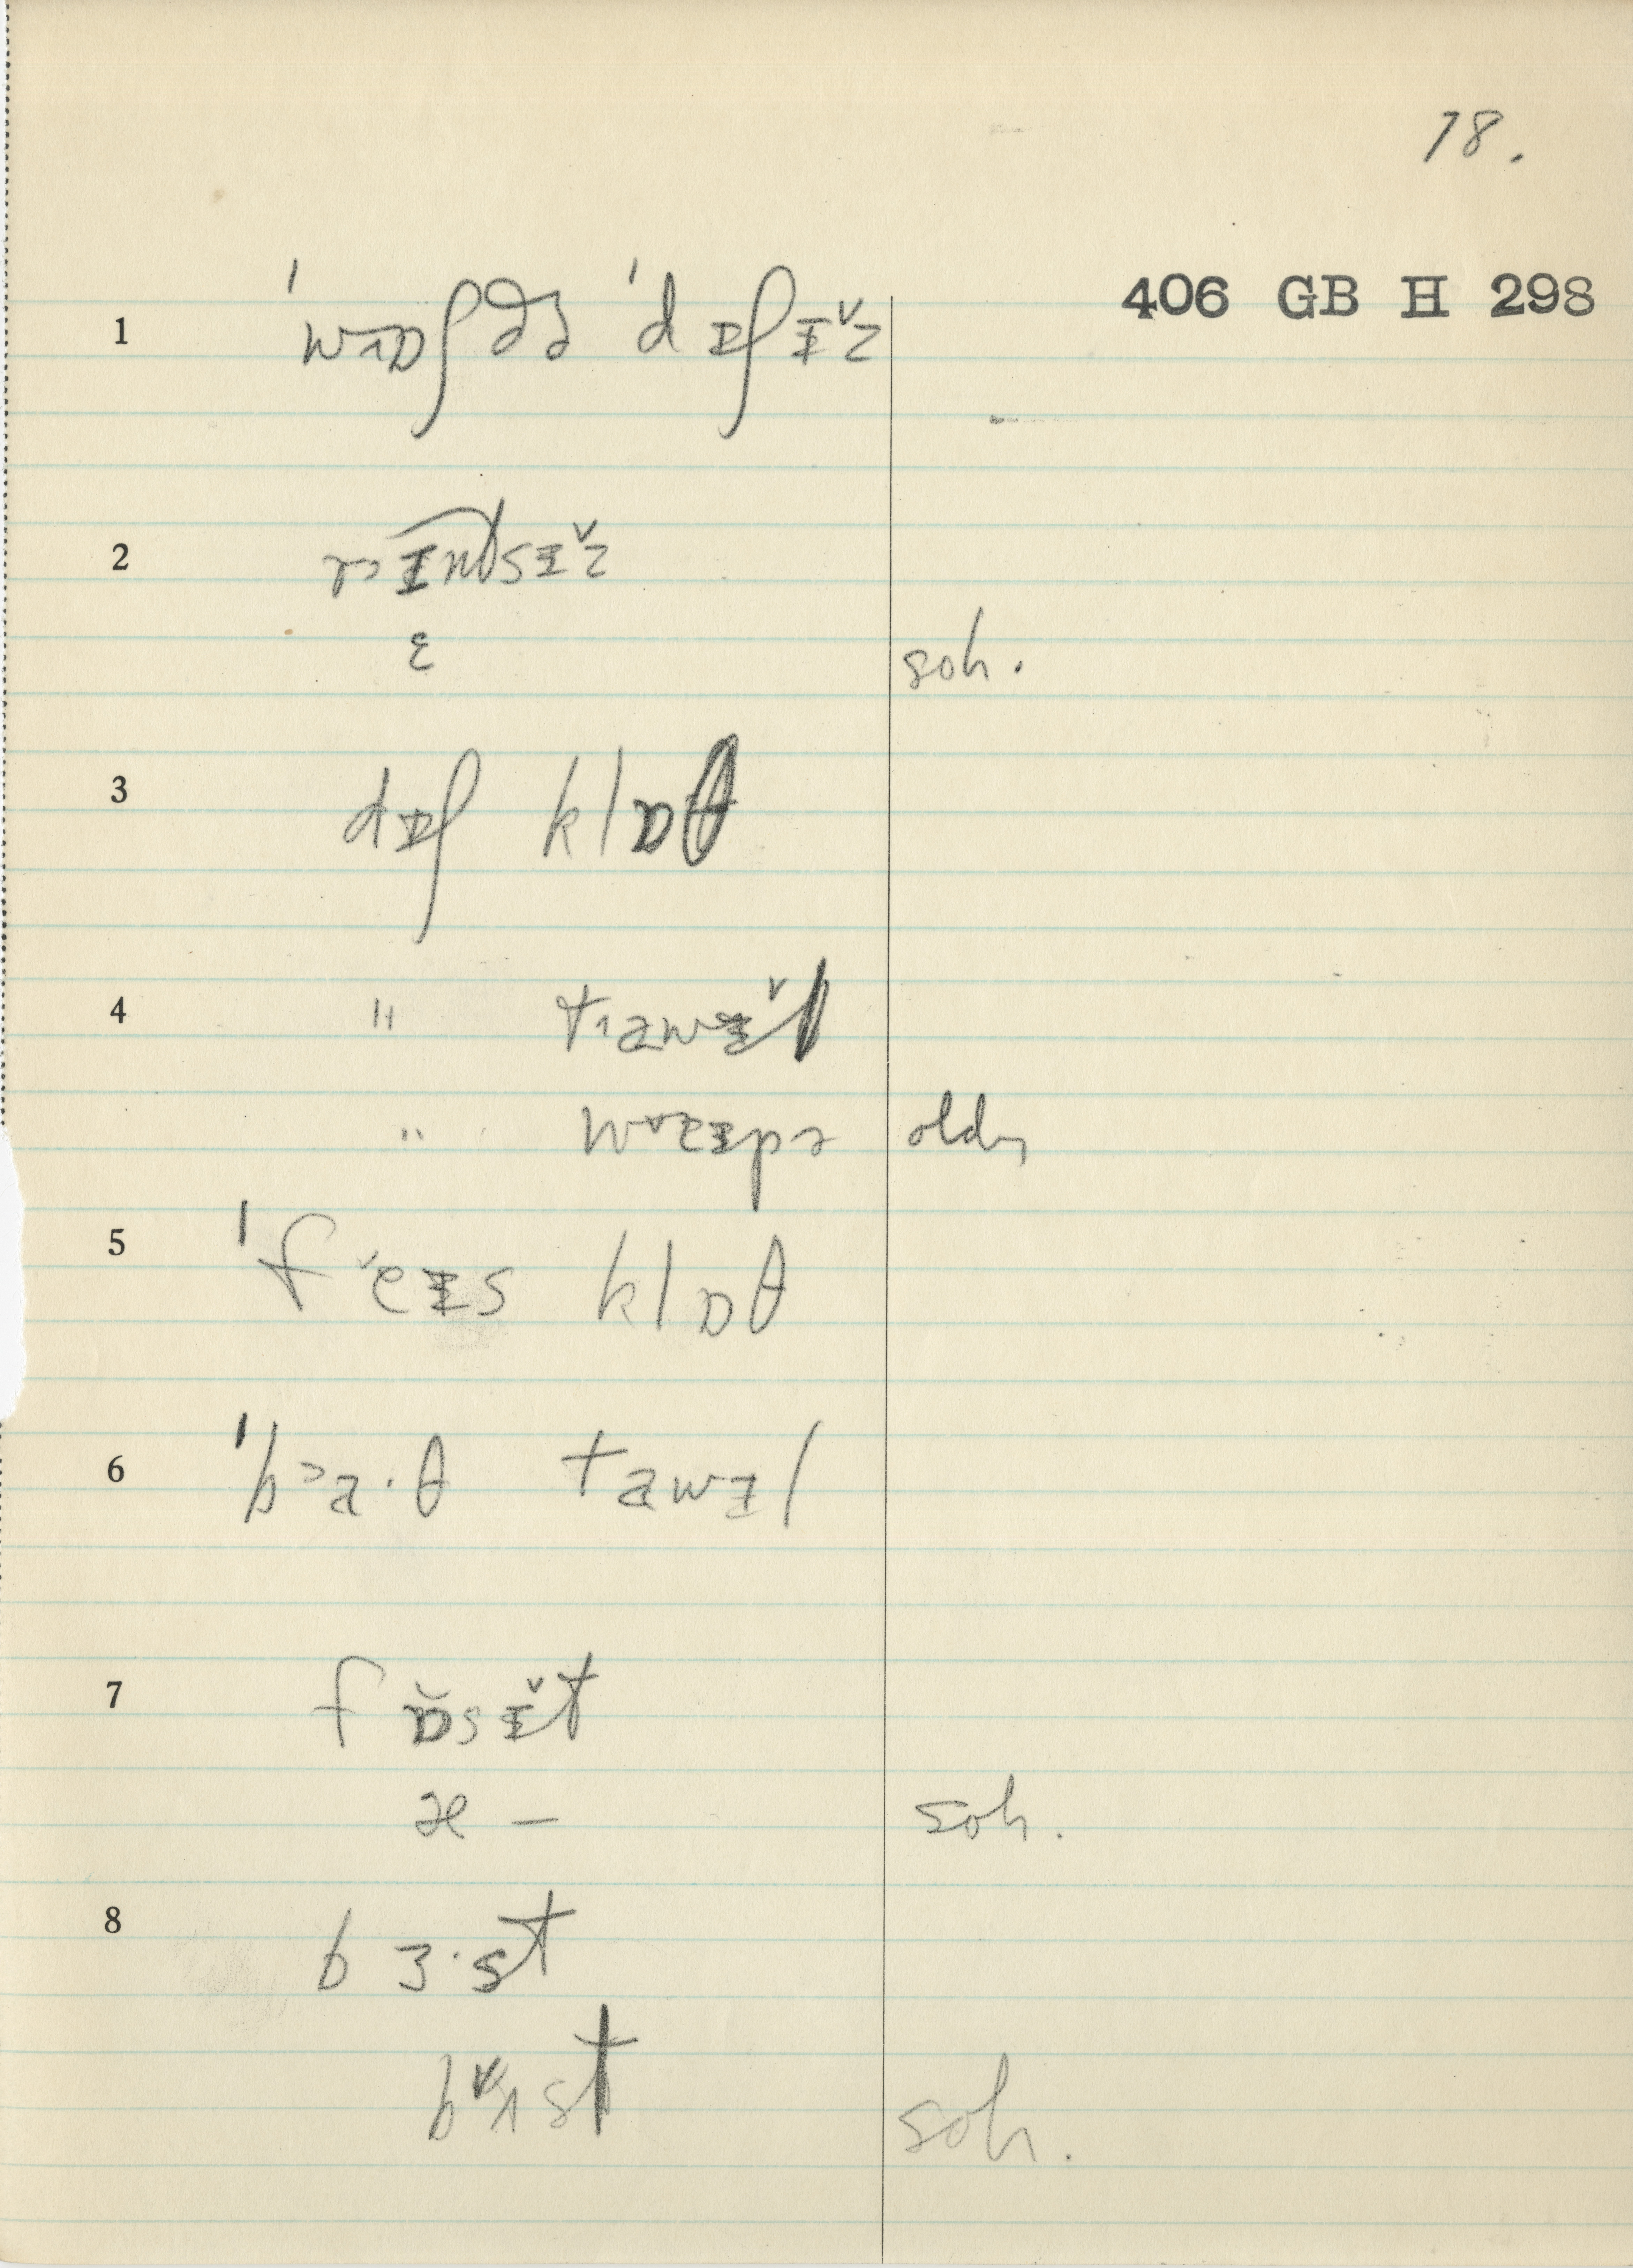 18.
406 GB H 298
1 ˈw˄ɒʃ ðə ˈdɪʃɪ̌z
2 r˃ɪntsɪ̌z
ɛ soh.
3 dɪʃ klɒθ
4 " t˄awɪ̌l
" wɪpɚ older
5 ˈfˇeɪs klɒθ
6 ˈb˃a·θ tawɪl
7 fɒ̌sɪ̌t
æ – soh.
8 bɜ·st
soh.